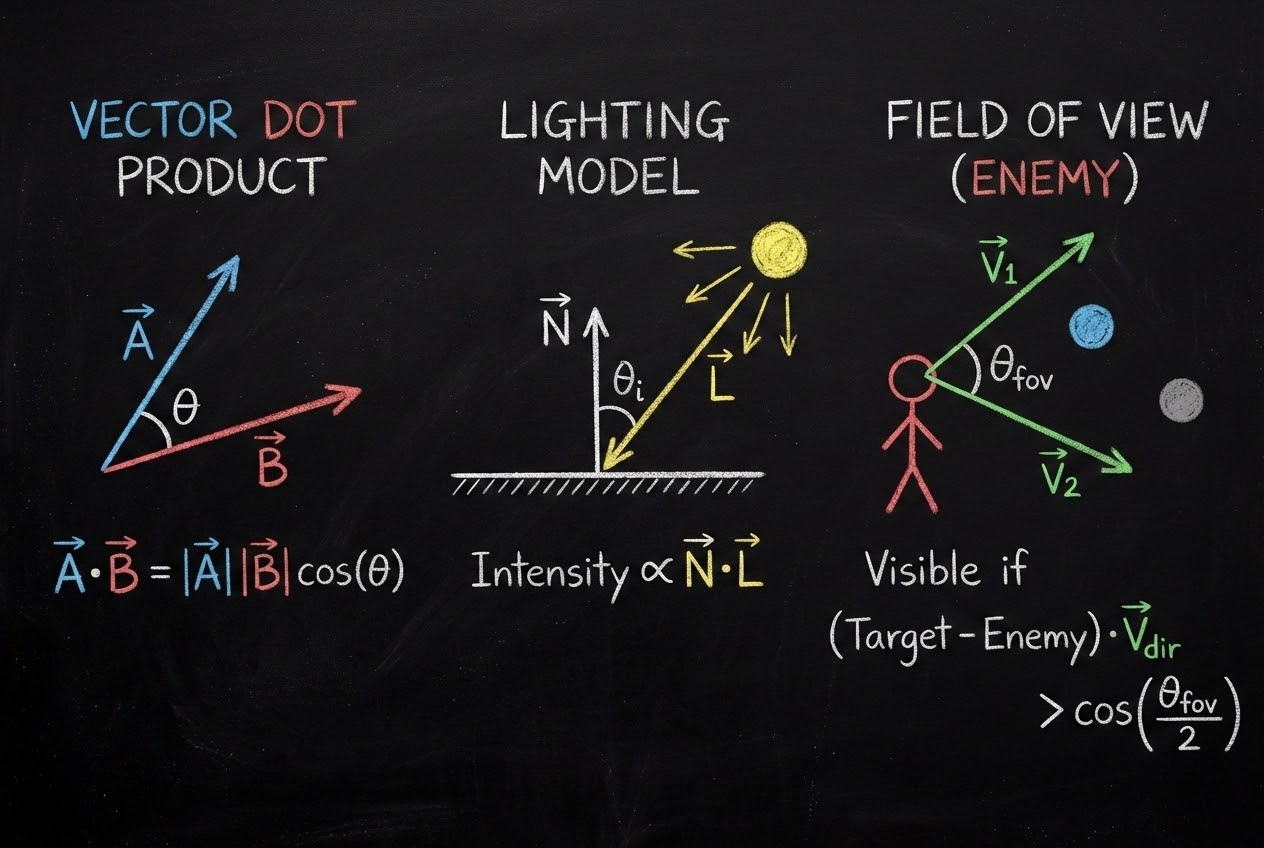 VECTOR DOT
PRODUCT
A⃗
θ
B⃗
A⃗·B⃗ = |A⃗||B⃗|cos(θ)
LIGHTING
MODEL
N⃗
θᵢ
L⃗
Intensity ∝ N⃗·L⃗
FIELD OF VIEW
(ENEMY)
V⃗₁
θfov
V⃗₂
Visible if
(Target – Enemy)·V⃗dir
> cos(θfov/2)